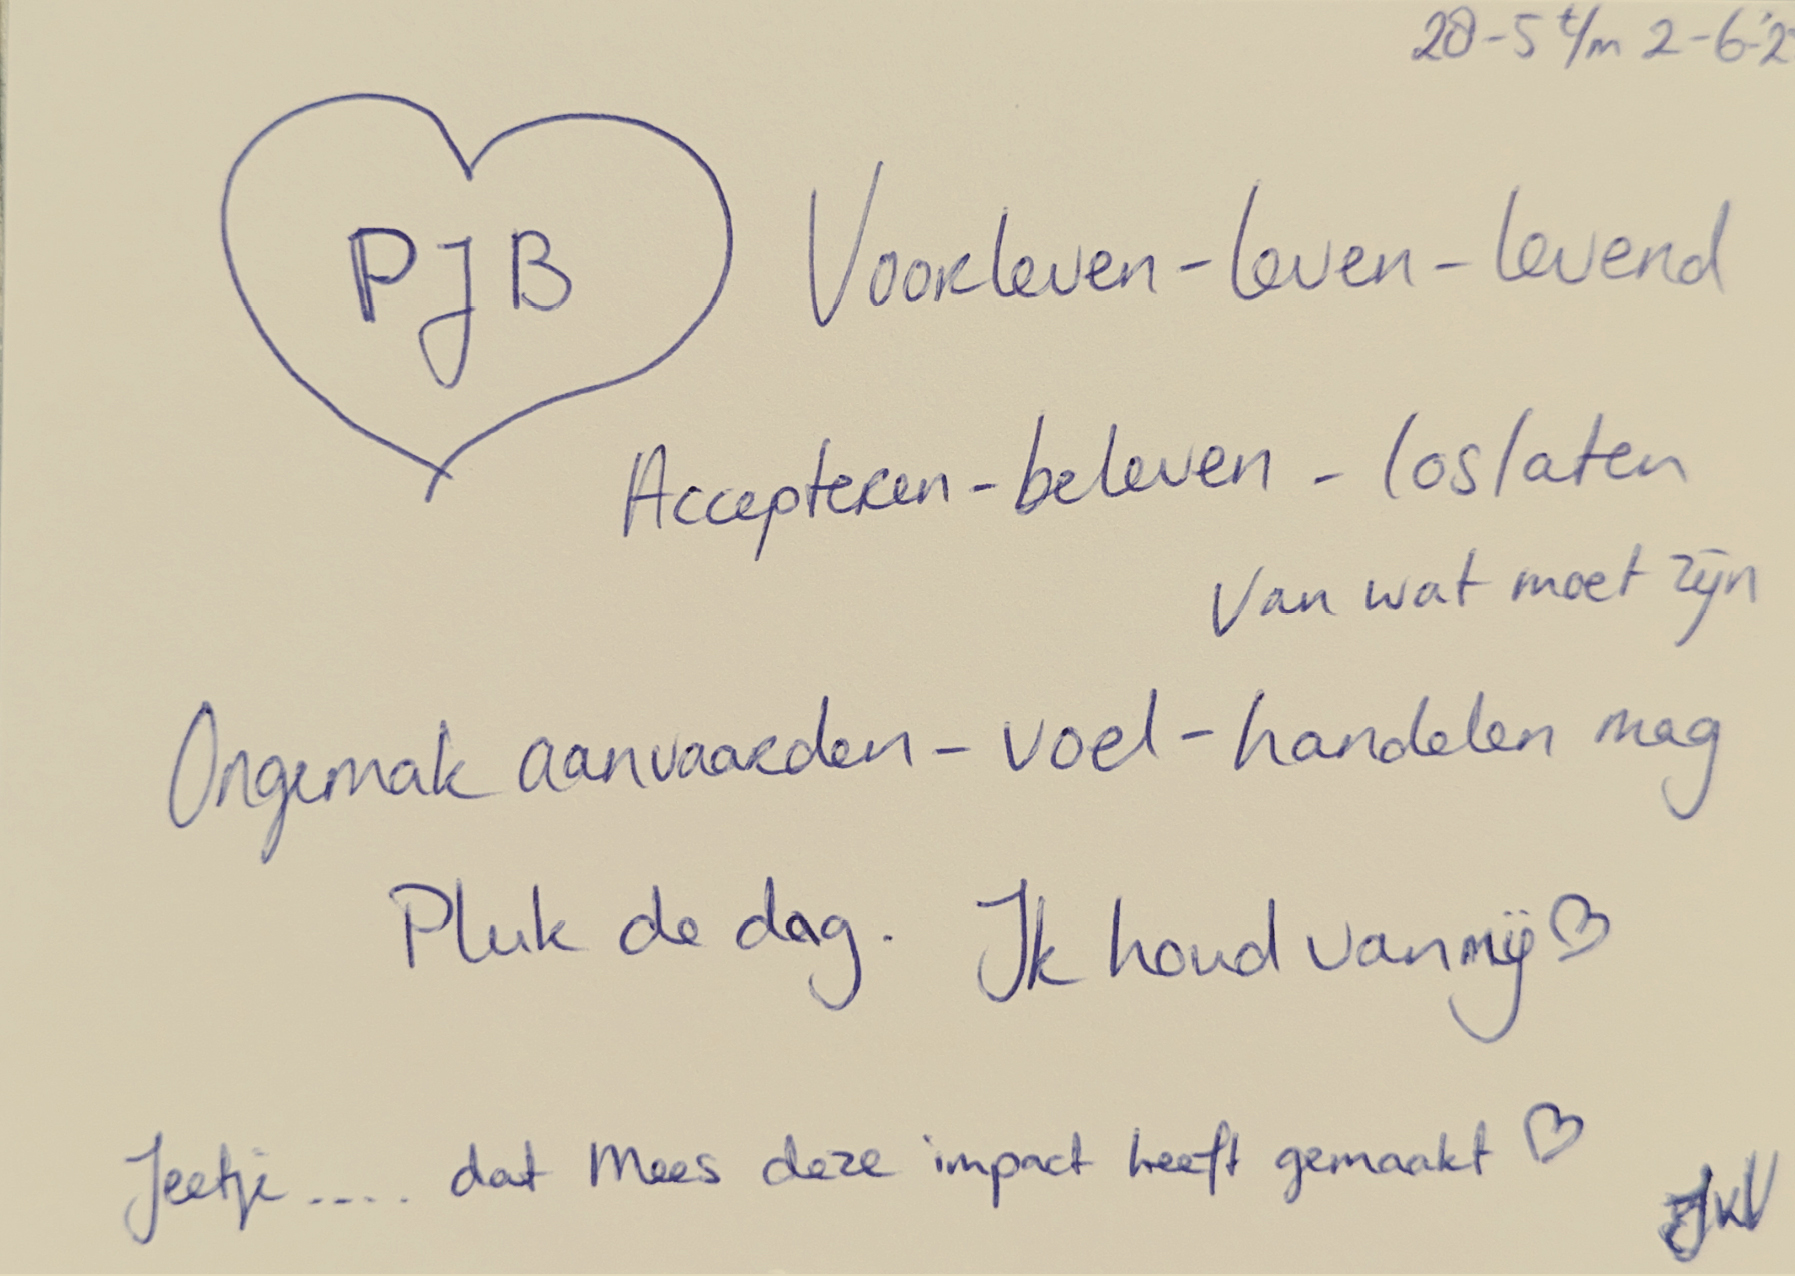 28-5 t/m 2-6-'2
PJB
Voorleven - leven - levend
Accepteren - beleven - loslaten
van wat moet zijn
Ongemak aanvaarden - voel - handelen mag
Pluk de dag. Ik houd van mij ♡
Jeetje..... dat Mees deze impact heeft gemaakt ♡